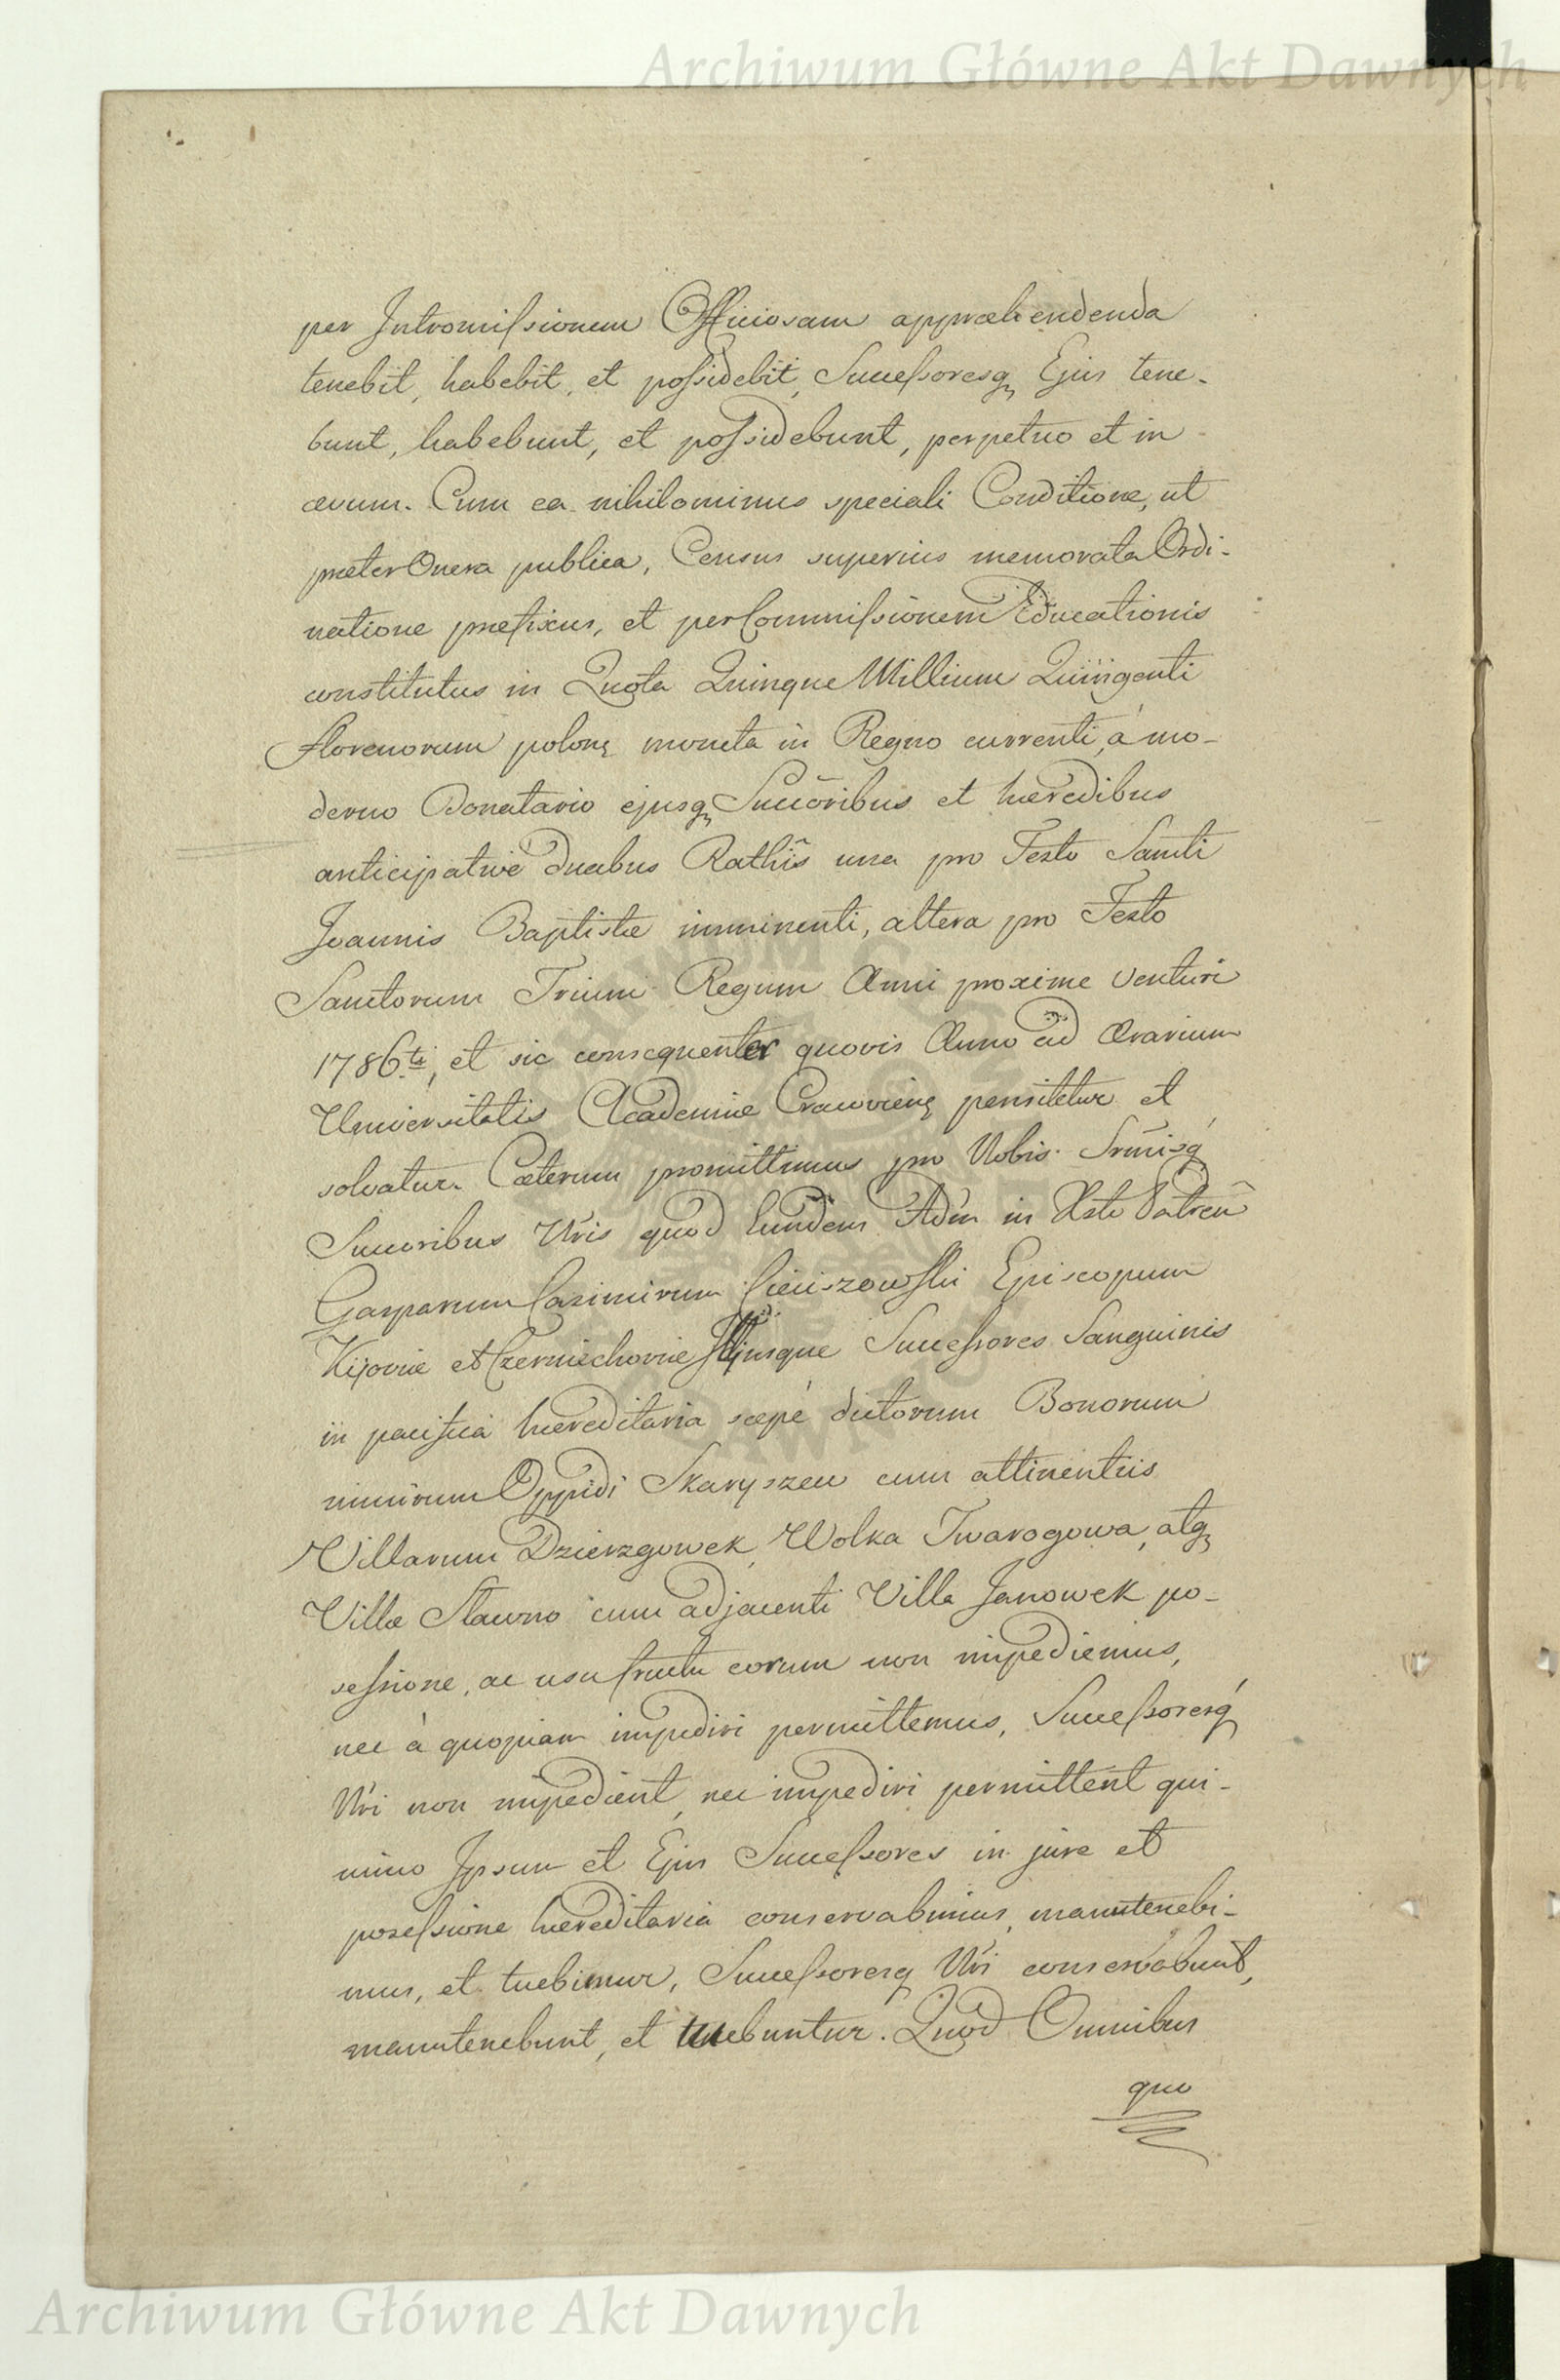 Archiwum Główne Akt Dawnych
per Intromiſsionem Officiosam appraehendenda
tenebit, habebit, et poſsidebit, Succeſsoresq, Ejus tene-
bunt, habebunt, et poſsidebunt, perpetuo et in
aevum. Cum ea nihilominus speciali Conditione, ut
praeter Onera publica, Census superius memorata Ordi-
natione praefixus, et per Commiſsionem Educationis
constitutus in Quota Quinque Millium Quingenti
florenorum polonę moneta in Regno currenti, à mo-
derno Donatario ejusq, Succōribus et haeredibus
anticipativè duabus Rathis una pro Festo Sancti
Joannis Baptistae imminenti, altera pro Festo
Sanctorum Trium Regum Anni proxime venturi
1786ti, et sic consequenter quovis Anno ad Aerarium
Universitatis Academiae Cracovienę pensitetur et
solvatur. Caeterum promittimus pro Nobis Srmisq́
Succoribus Nris quod Eundem Adm in Xsto Patrem̄
Gasparum Casimirum Cieciszowski Episcopum
Kijoviae et Czerniechoviae Ejusque Succeſsores Sanguinis
in pacifica haereditaria saepè dictorum Bonorum
nimirum Oppidi Skaryszew cum attinentiis
Villarum Dzierzgowek, Wolka Twarogowa, atq,
Villae Sławno cum adjacenti Villa Janowek po-
seſsione, ac usufructu eorum non impediemus,
nec à quopiam impediri permittemus, Succeſsoresq́
Nri non impedient, nec impediri permittent qui-
nimo Ipsum et Ejus Succeſsores in jure et
poseſsione haereditaria conservabimus, manutenebi-
mus, et tuebimur, Succeſsoresq Nri conservabunt,
manutenebunt, et tuebuntur. Quod Omnibus
quo
Archiwum Główne Akt Dawnych